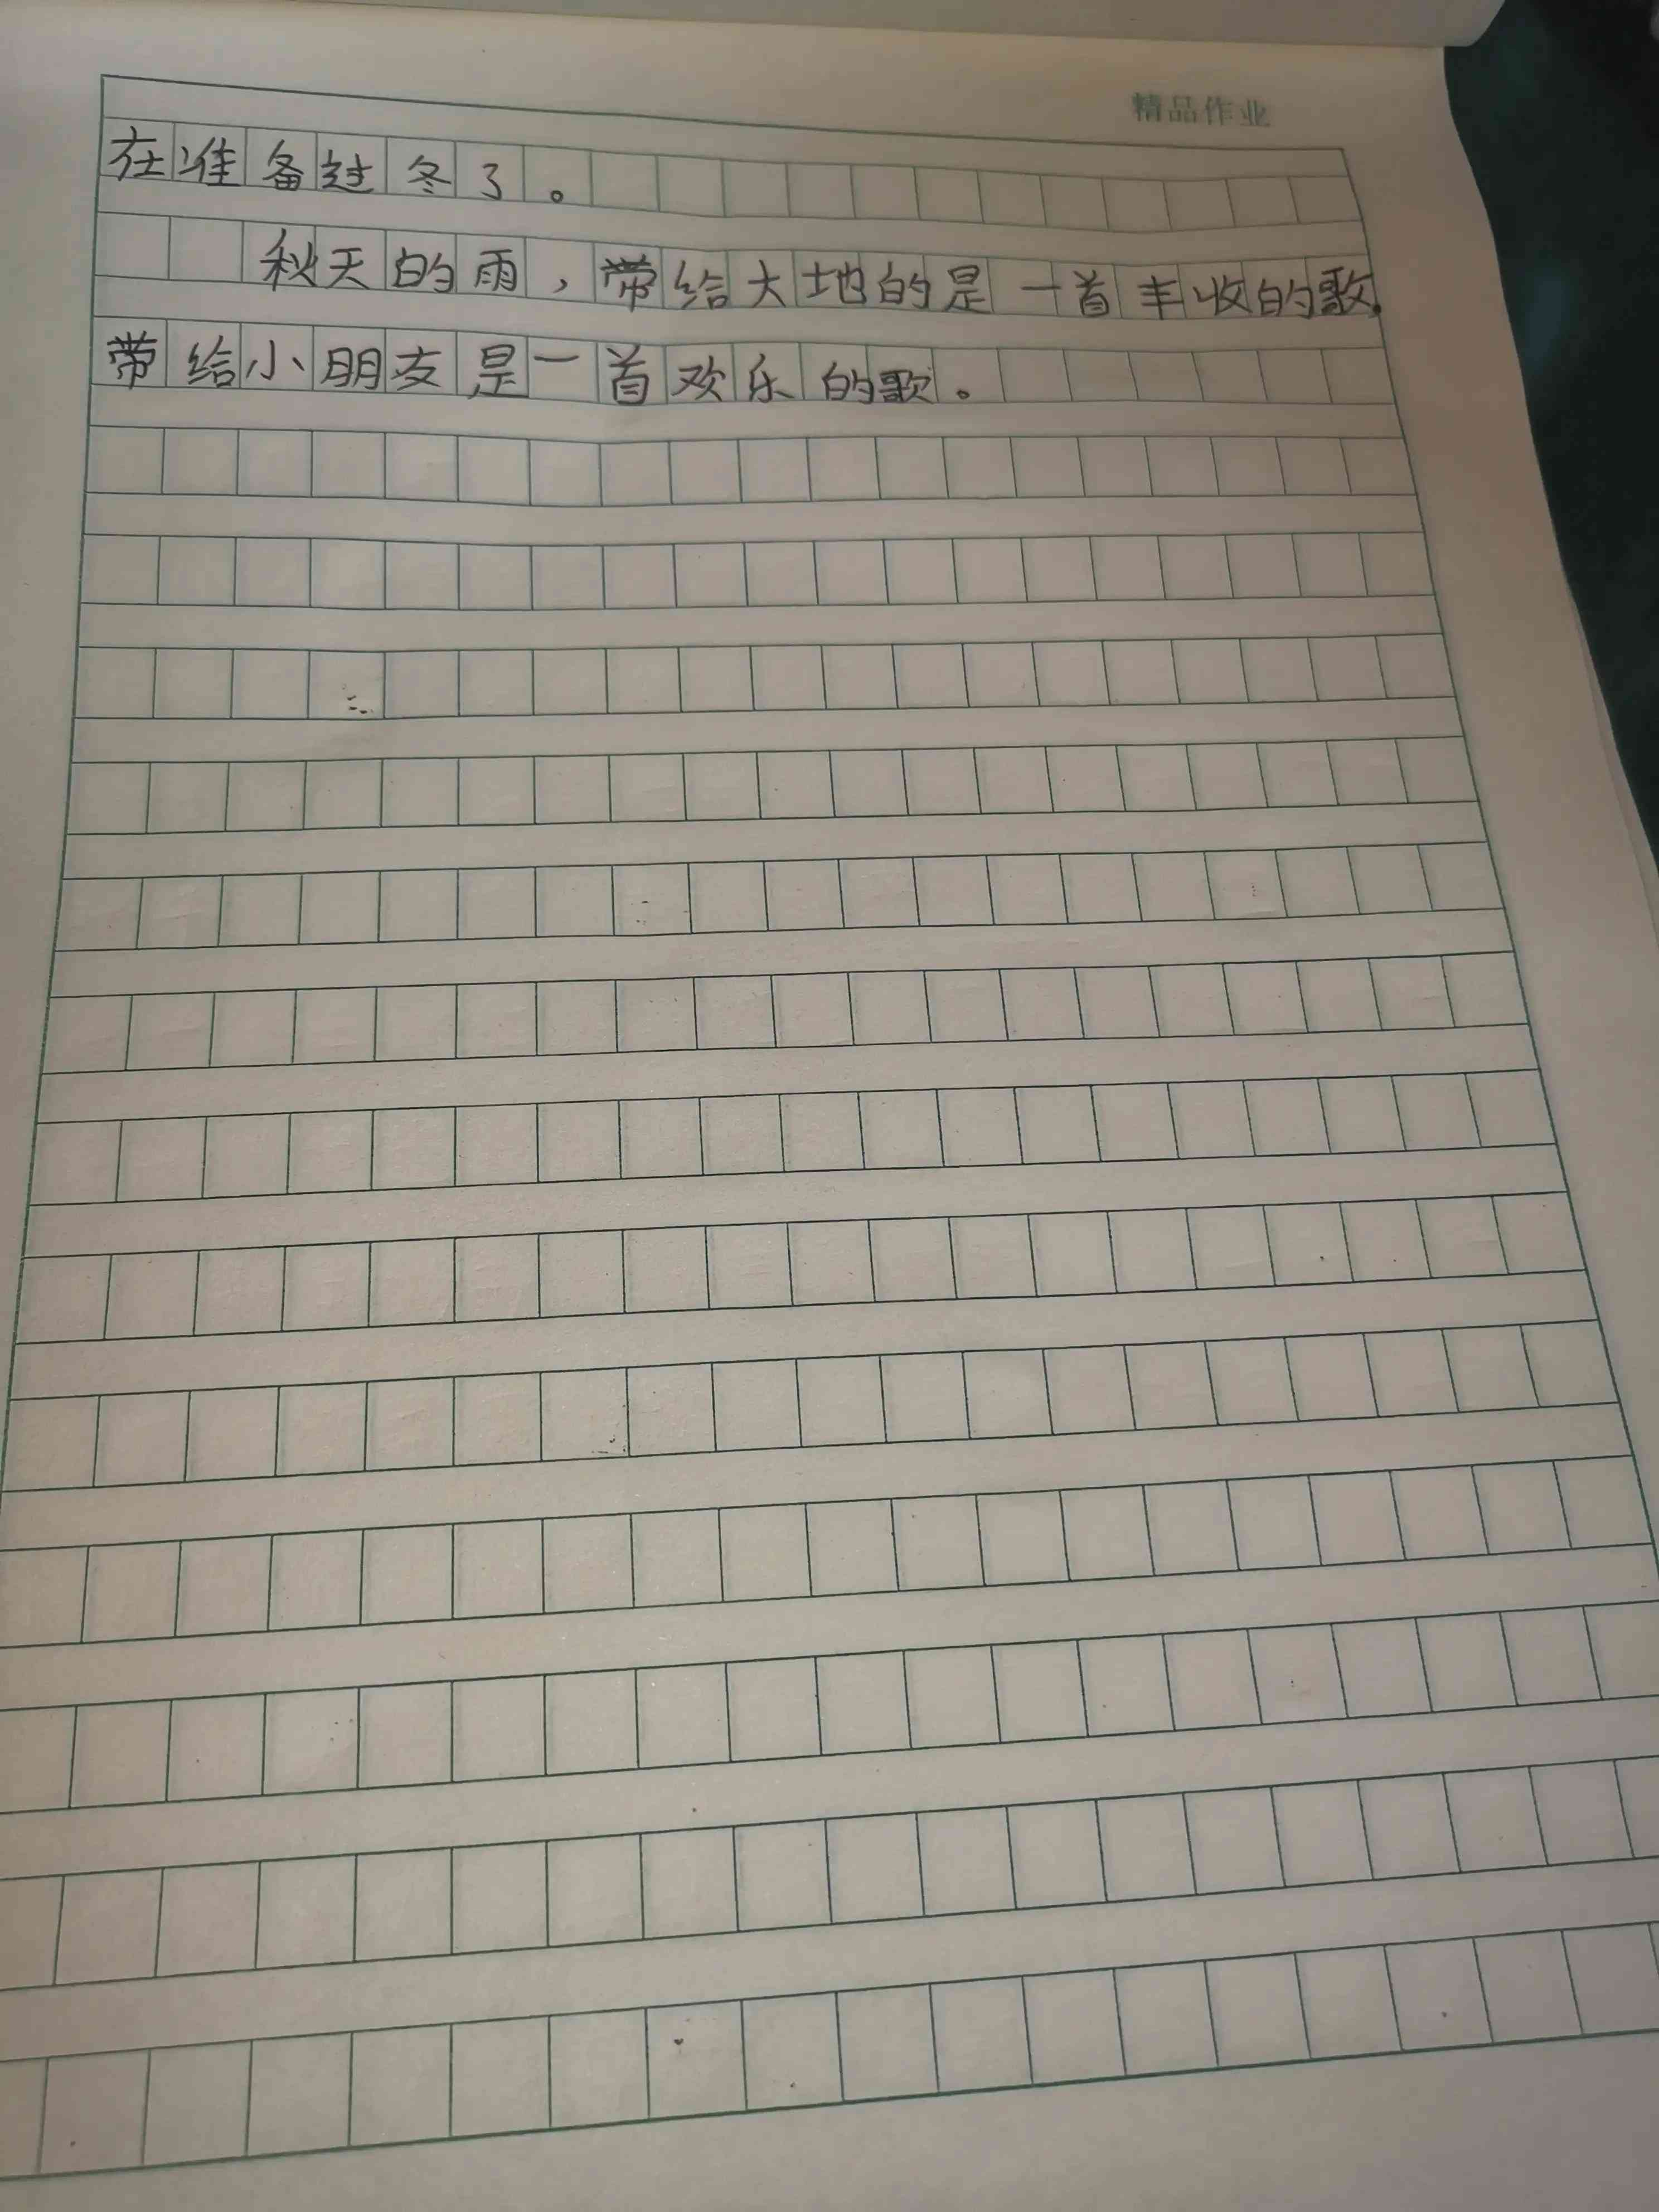 精品作业
在准备过冬了。
秋天的雨，带给大地的是一首丰收的歌.
带给小朋友是一首欢乐的歌。